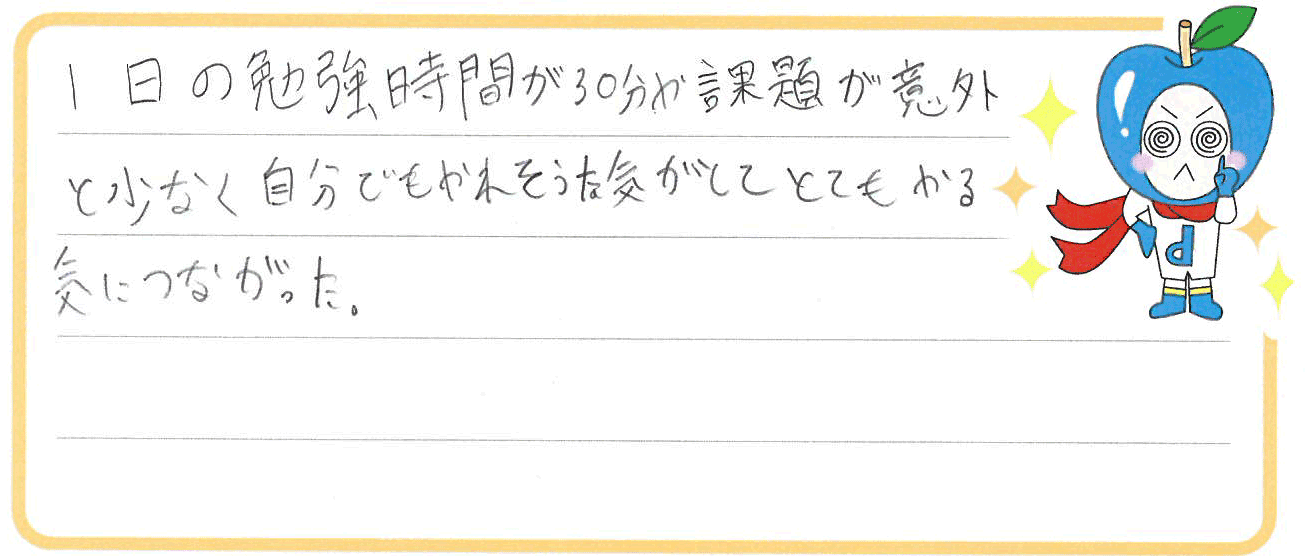 1日の勉強時間が30分や課題が意外
と少なく自分でもやれそうな気がしてとてもやる
気につながった。